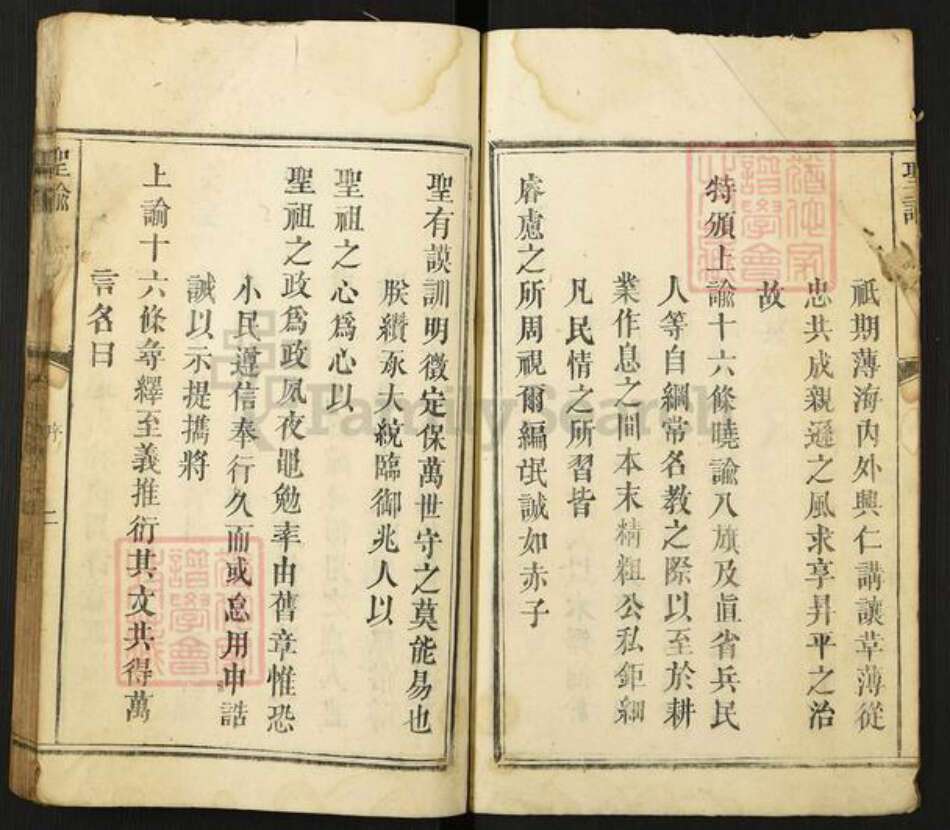 聖諭
祇期薄海內外興仁講讓革薄從
忠共成親遜之風求享昇平之治
故
特頒上諭十六條曉諭八旗及直省兵民
人等自綱常名教之際以至於耕
業作息之間本末精粗公私鉅細
凡民情之所習皆
睿慮之所周視爾編氓誠如赤子
聖有謨訓明徵定保萬世守之莫能易也
朕纘承大統臨御兆人以
聖祖之心為心以
聖祖之政為政夙夜黽勉率由舊章惟恐
小民遵信奉行久而或怠用申誥
誡以示提撕將
上諭十六條尋繹至義推衍其文共得萬
言名曰
聖諭
序
二
FamilySearch